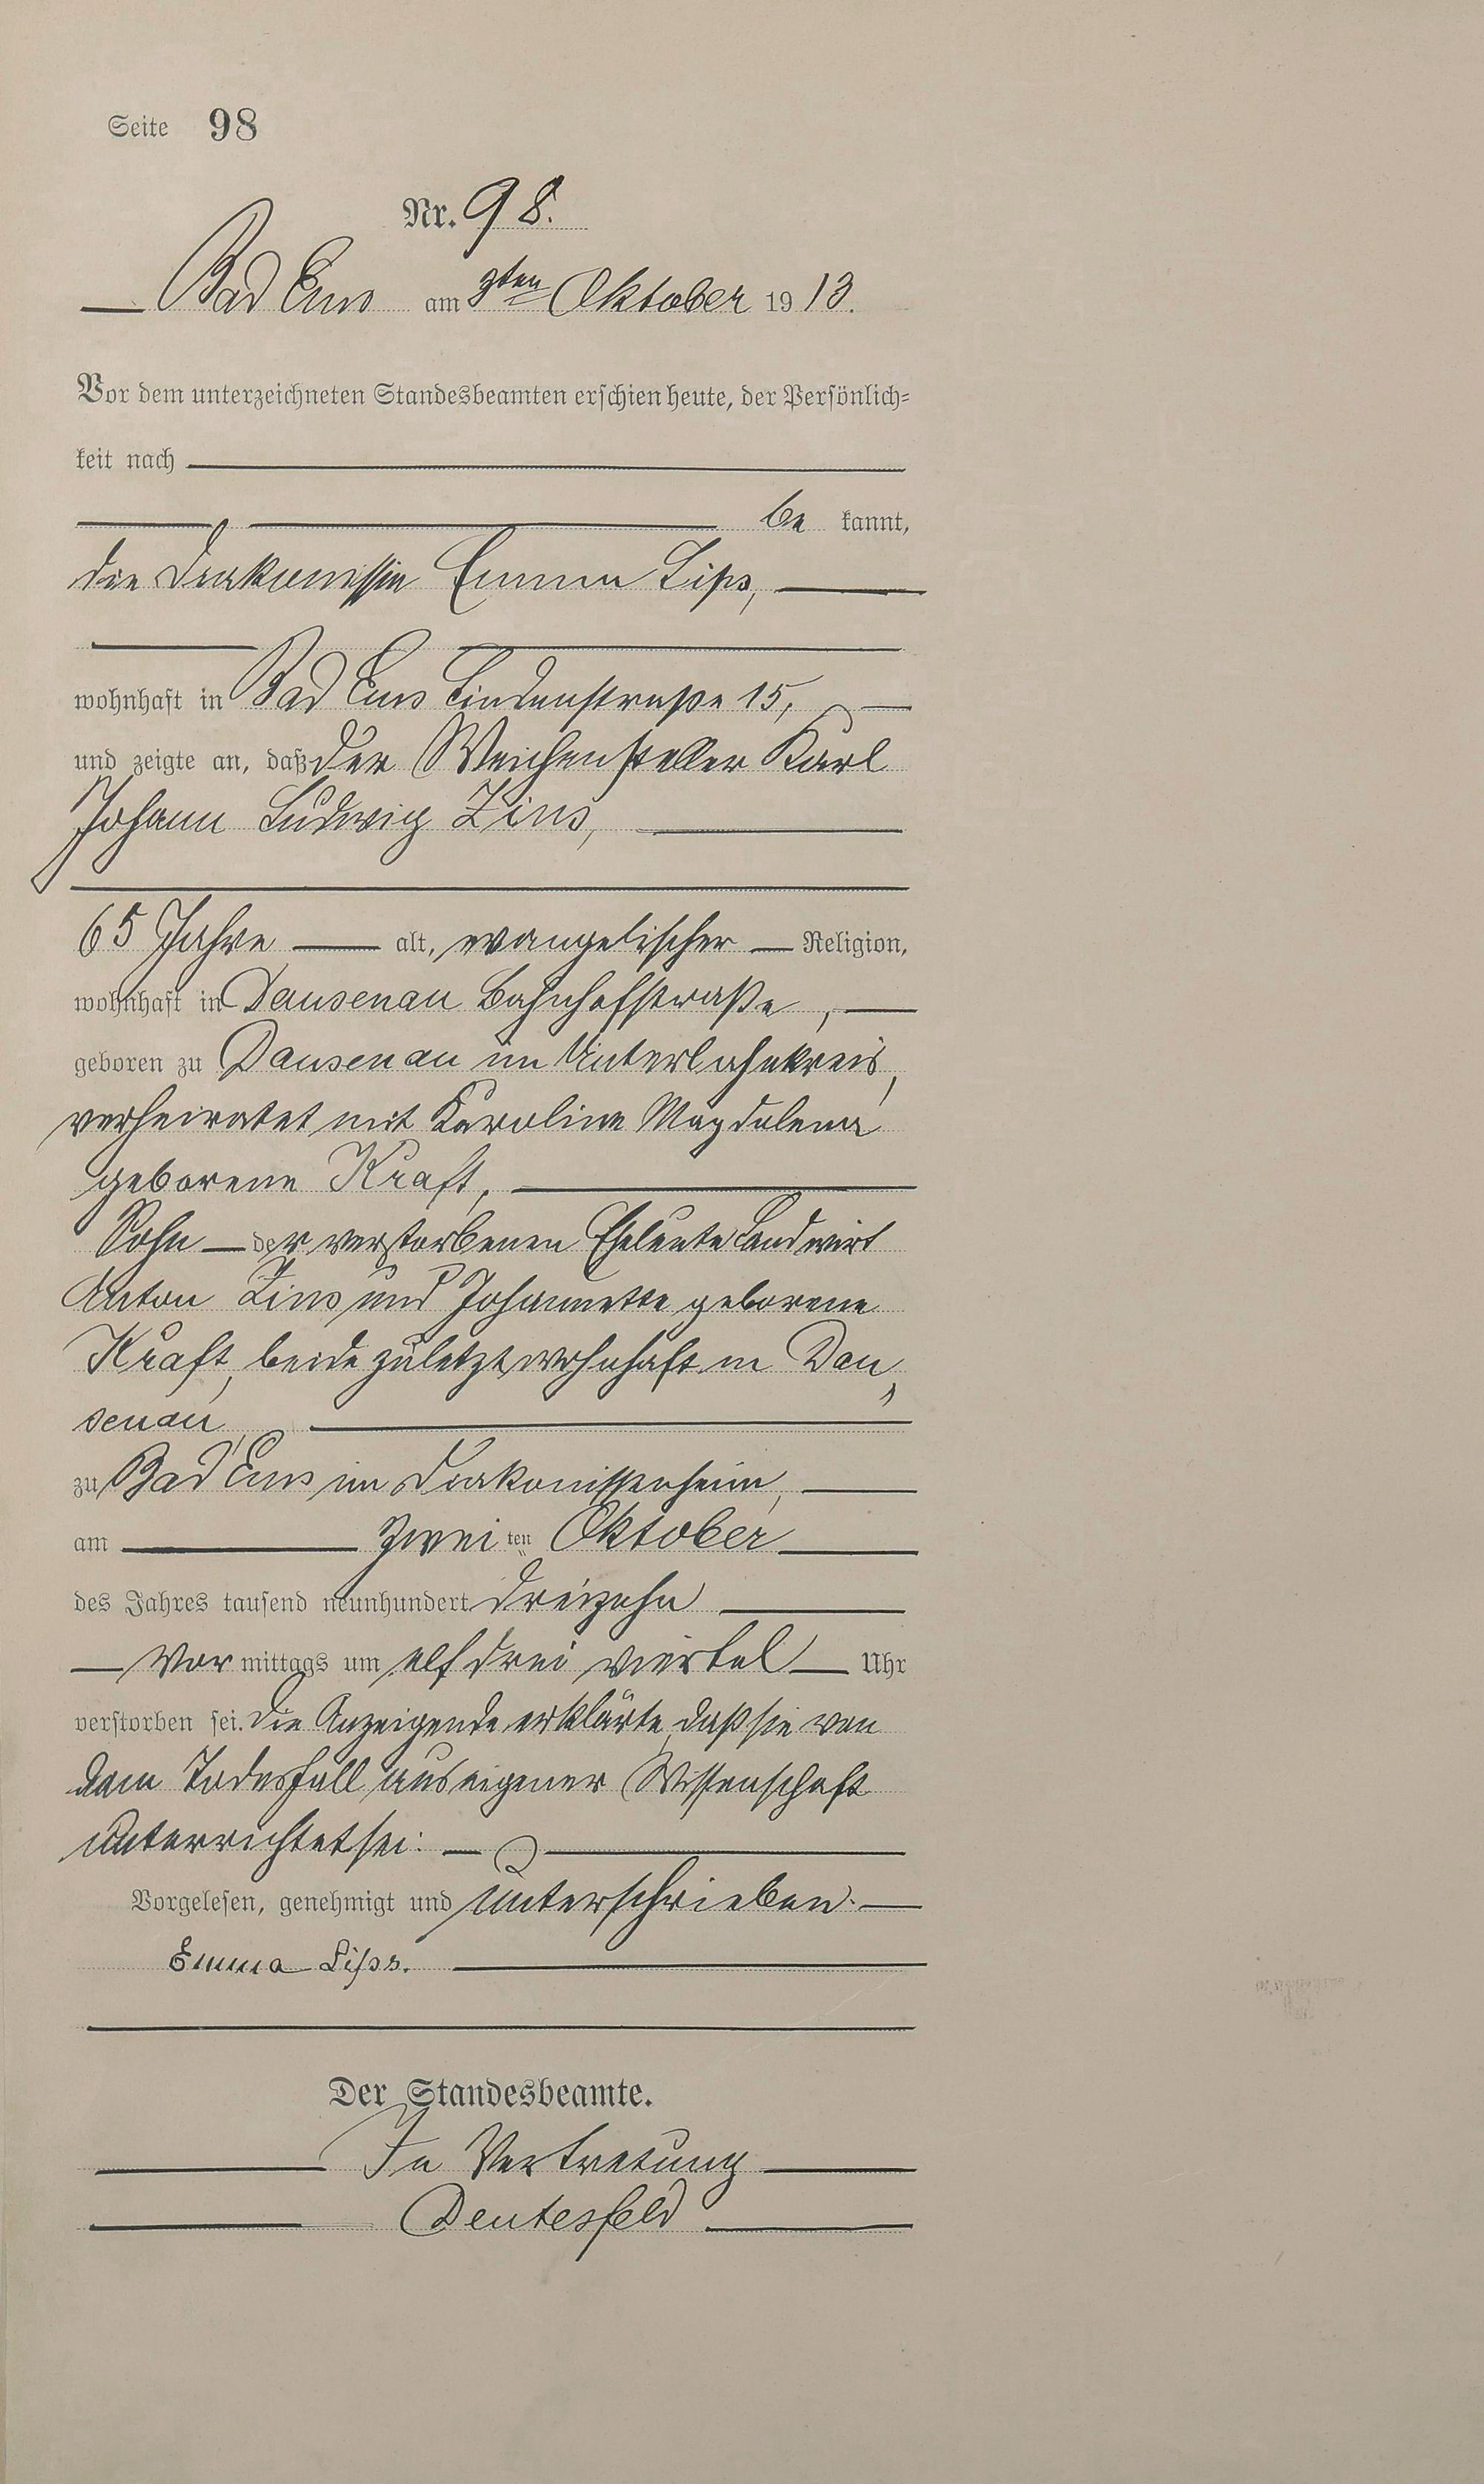 Seite 98
Nr. 98.
Bad Ems am 3ten Oktober 1913.
Vor dem unterzeichneten Standesbeamten erschien heute, der Persönlich=
keit nach
be kannt,
die Diakonissin Emma Lips,
wohnhaft in Bad Ems Lindenstraße 15,
und zeigte an, daß der Weichensteller Karl
Johann Ludwig Zins,
65 Jahre alt, evangelischer Religion,
wohnhaft in Dausenau Bahnhofstraße,
geboren zu Dausenau im Unterlahnkreis,
verheiratet mit Karoline Magdalena
geborene Kraft,
Sohn der verstorbenen Eheleute Landwirt
Anton Zins und Johannette geborene
Kraft, beide zuletzt wohnhaft in Dau„
senau,
zu Bad Ems im Diakonissenheim,
am zwei ten Oktober
des Jahres tausend neunhundert dreizehn
Vor mittags um elf drei viertel Uhr
verstorben sei. Die Anzeigende erklärte, daß sie von
dem Todesfall aus eigener Wissenschaft
unterrichtet sei.
Vorgelesen, genehmigt und unterschrieben.
Emma Lips.
Der Standesbeamte.
In Vertretung
Deutesfeld